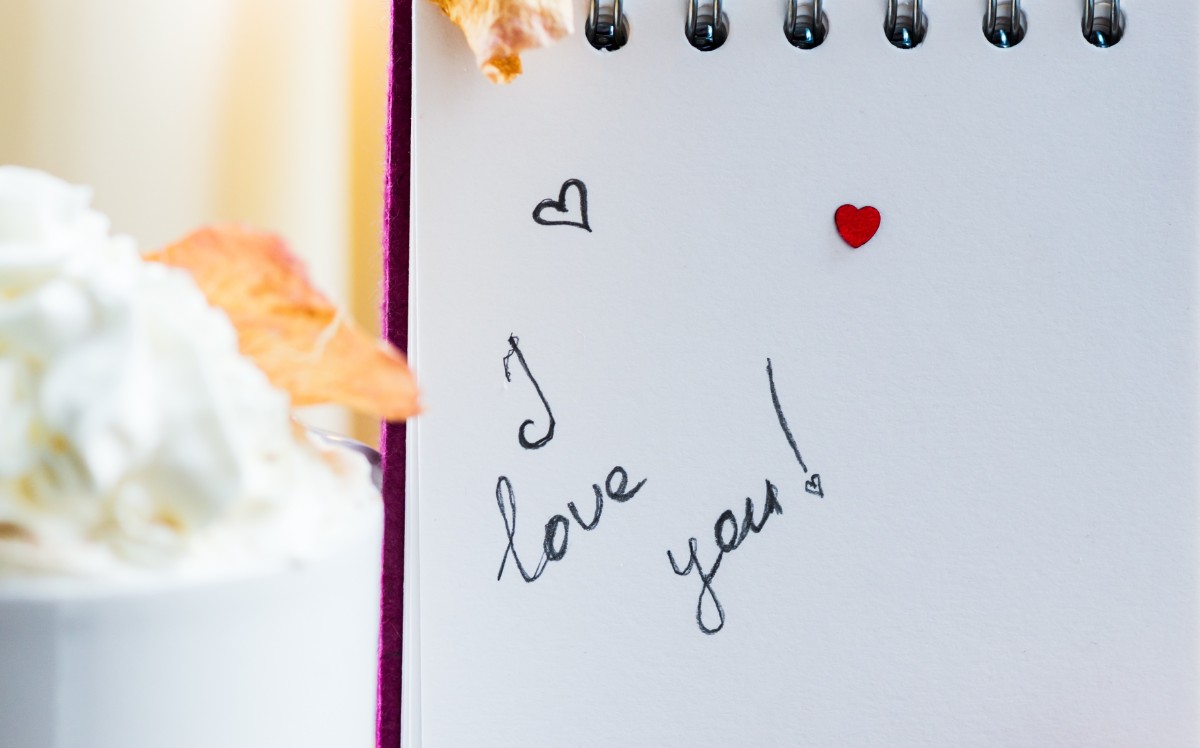 I
love you!